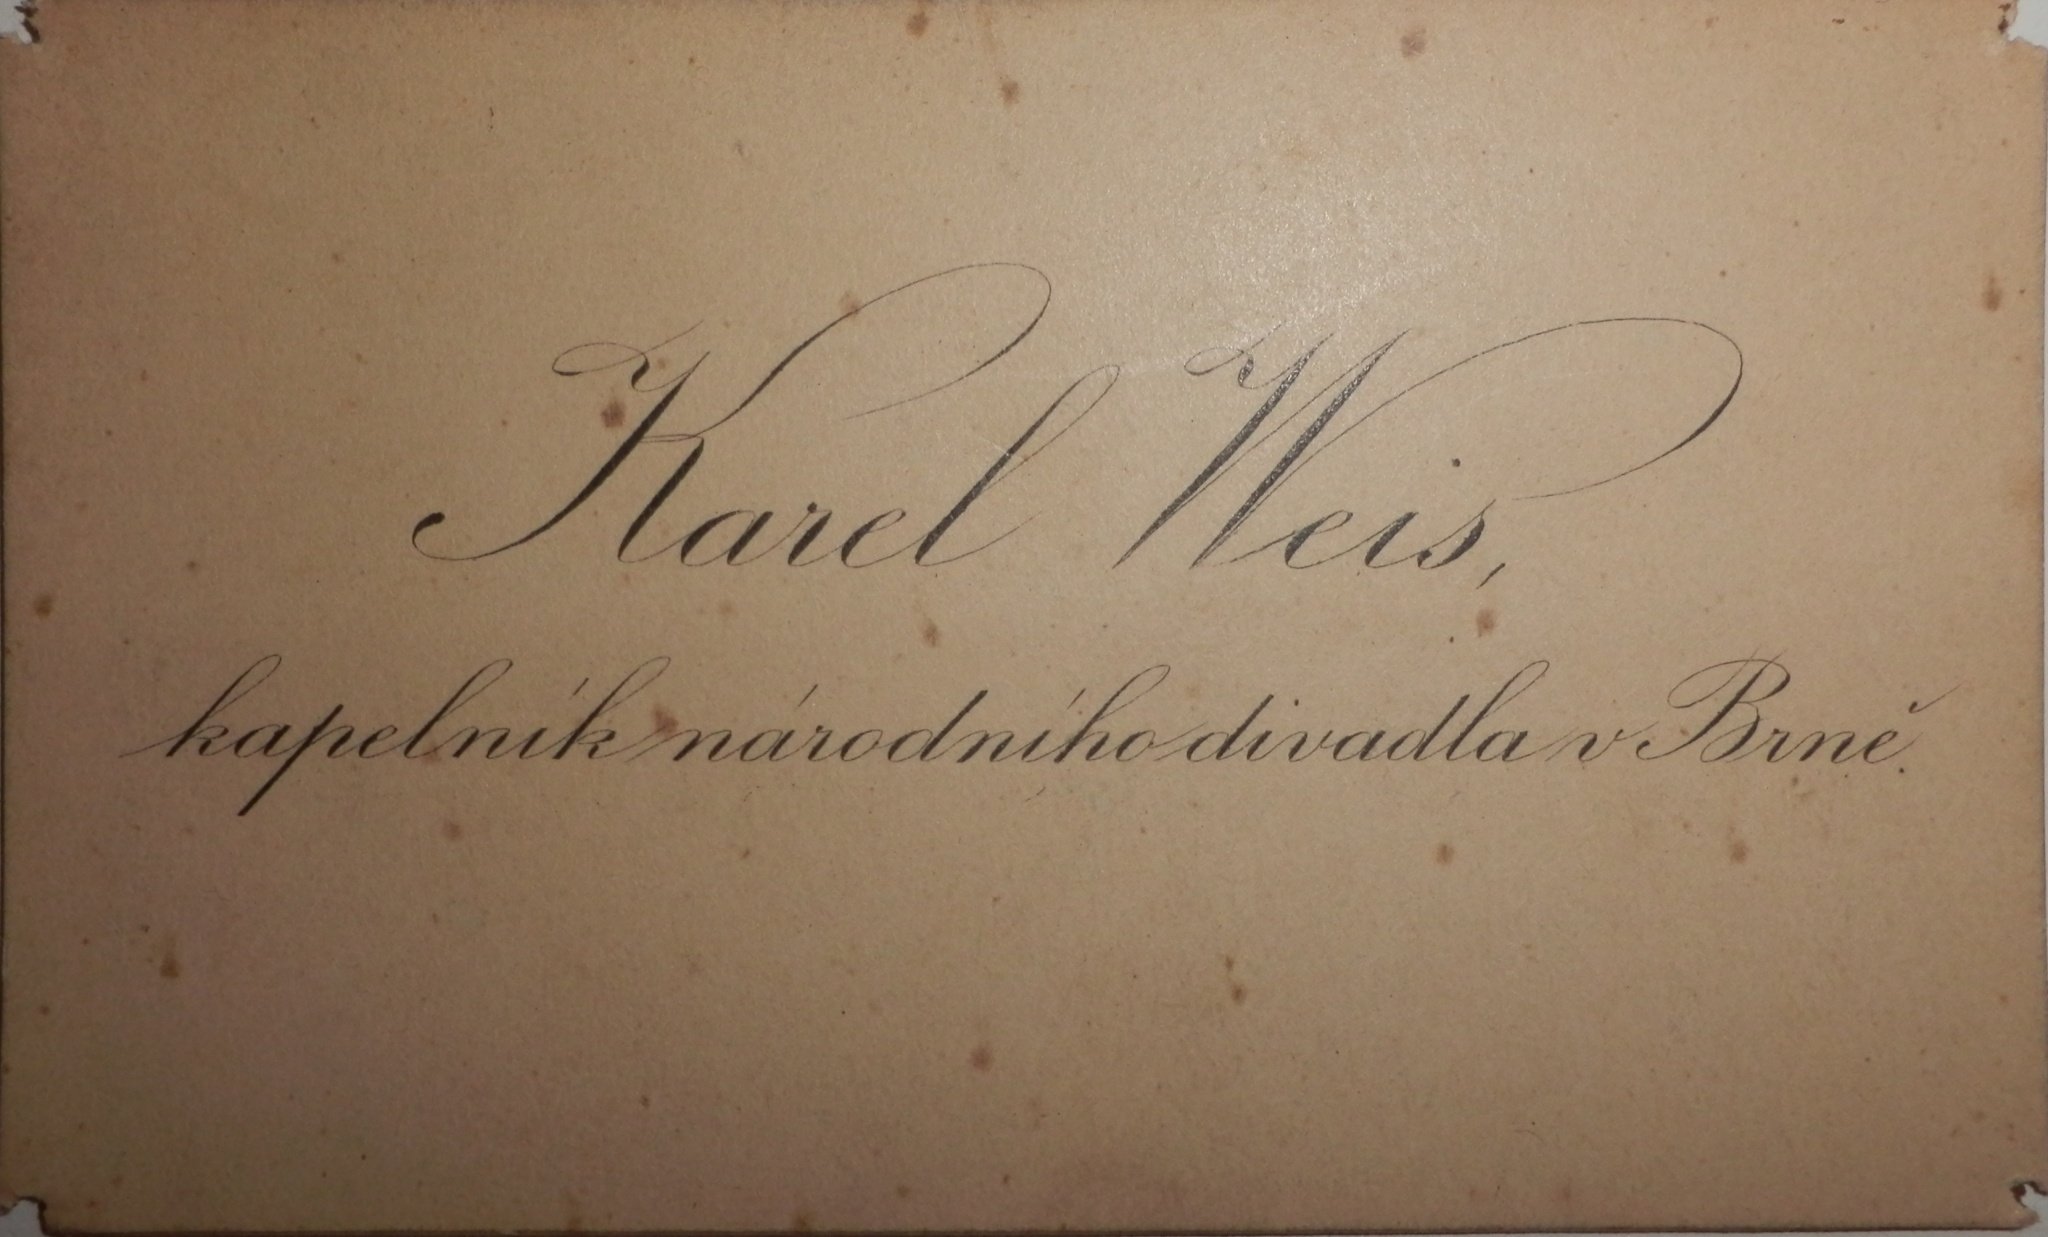 Karel Weis,
kapelník národního divadla v Brně.